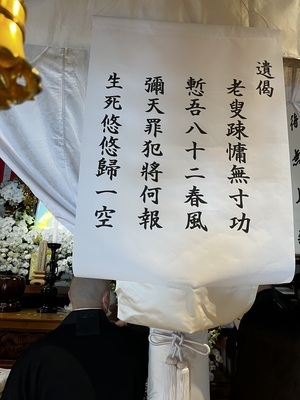 遺偈
老叟疎慵無寸功
慙吾八十二春風
彌天罪犯將何報
生死悠悠歸一空